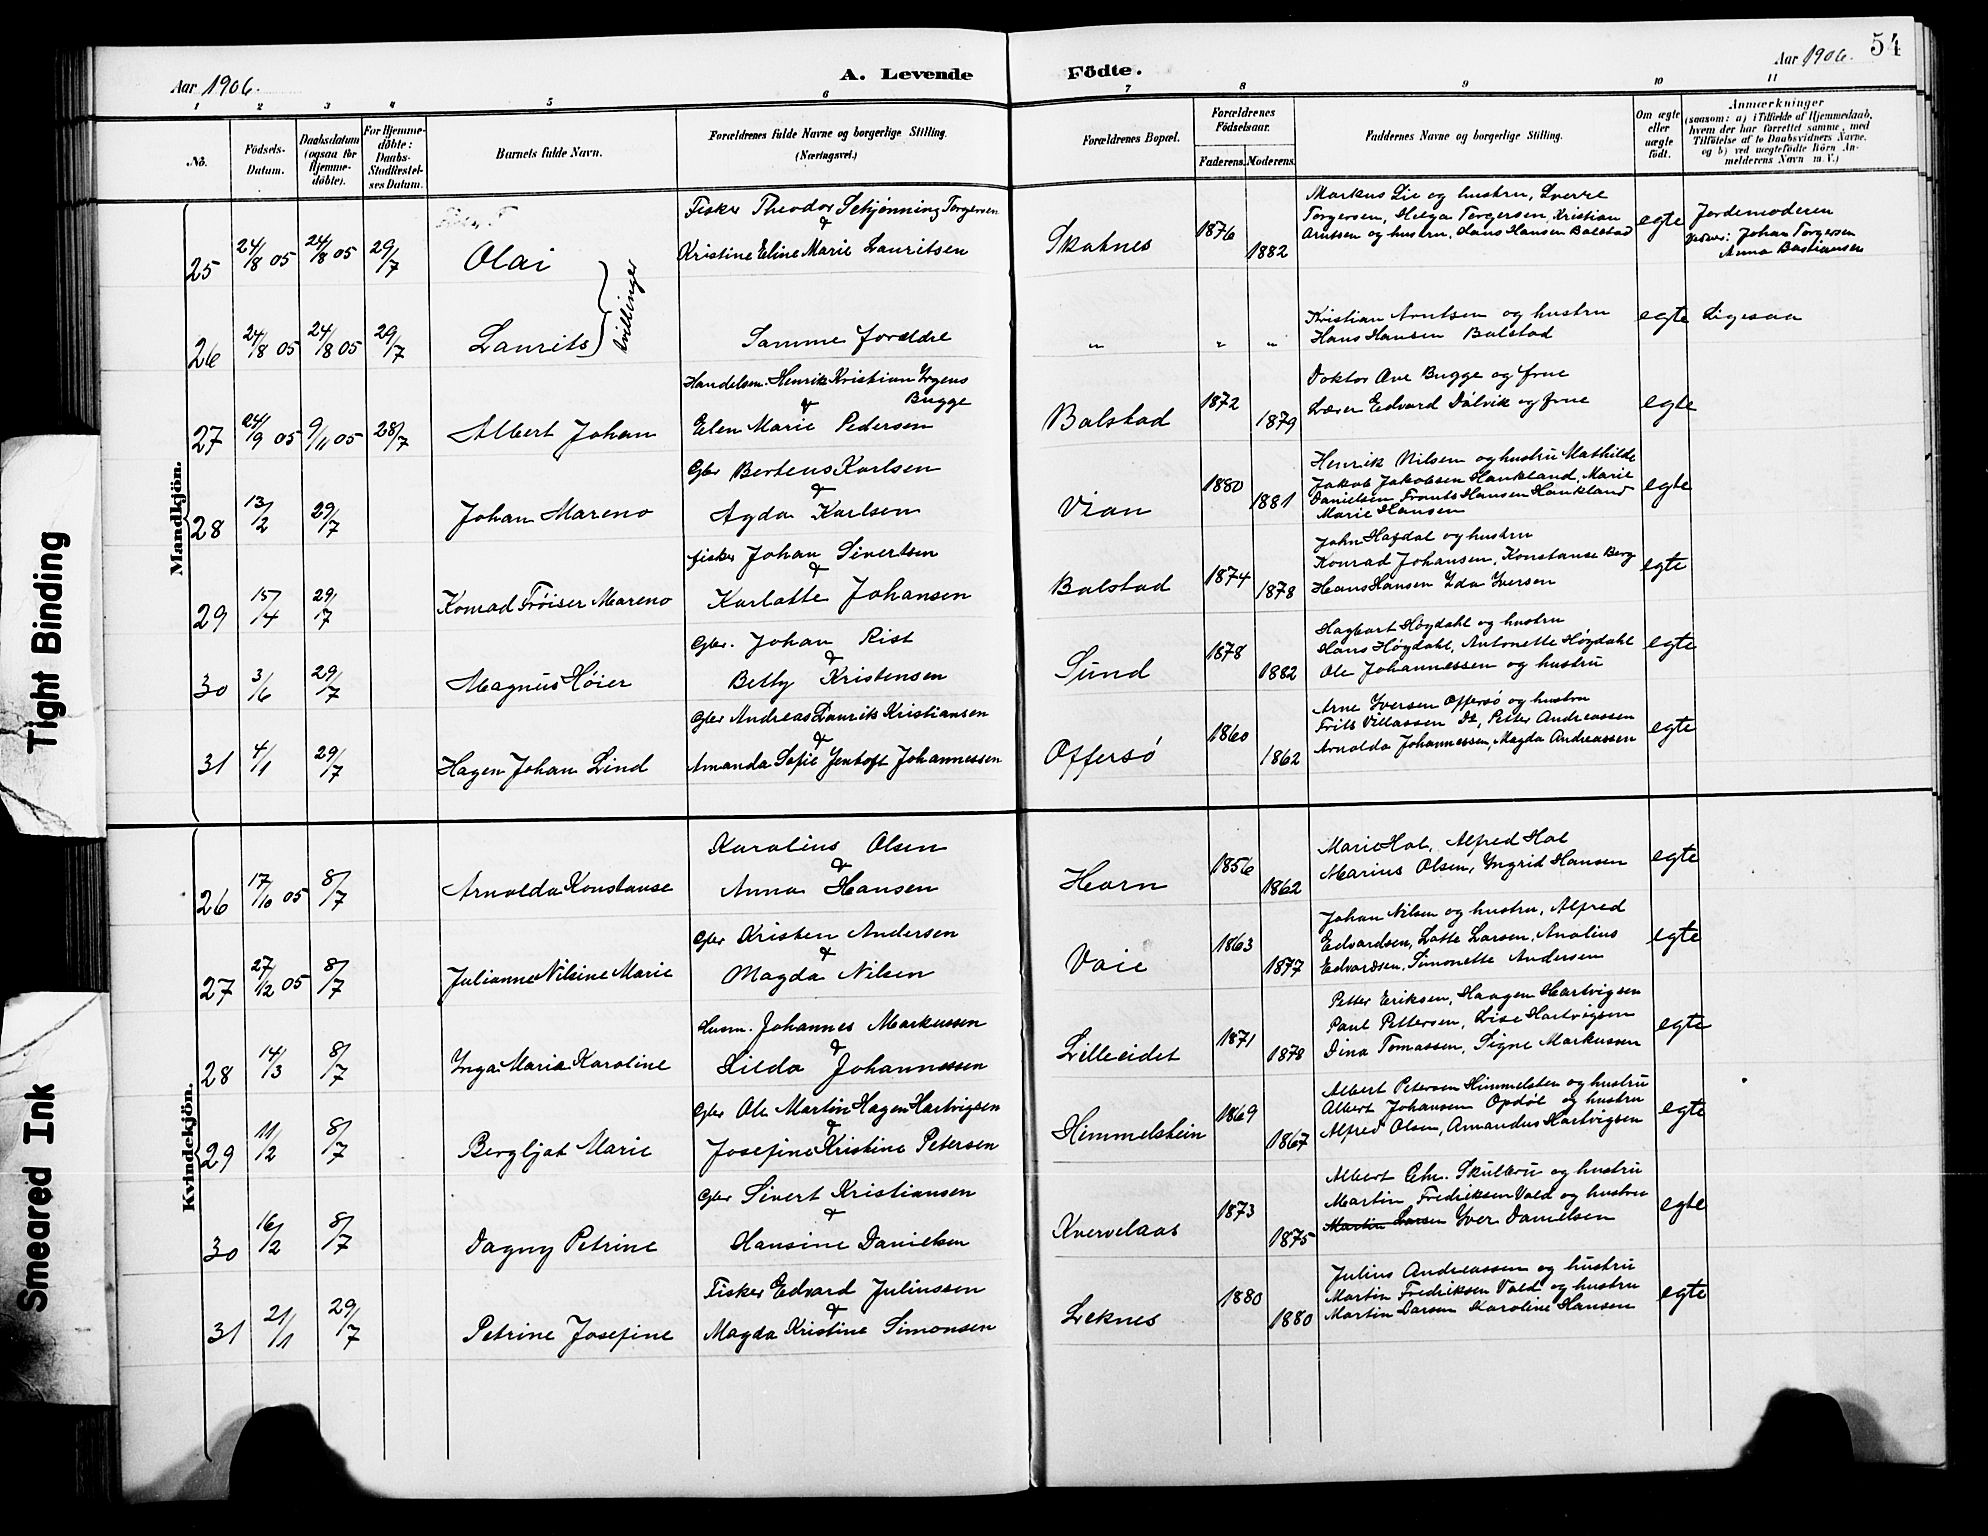 Tight Binding
Smeared Ink
54
Aar 1906.
A. Levende
Födte.
Aar 1906.
1 2 3 4 5 6 7 8 9 10 11
No.
Födsels-Datum.
Daabsdatum (ogsaa for Hjemme-döbte).
For Hjemme-döbte: Daabs-Stadfæstel-ses Datum.
Barnets fulde Navn.
Forældrenes fulde Navne og borgerlige Stilling.
(Næringsvei.)
Forældrenes Bopæl.
Forældrenes Födselsaar.
Faderens. Moderens.
Faddernes Navne og borgerlige Stilling.
Om ægte eller uægte födt.
Anmærkninger
(saasom: a) i Tilfælde af Hjemmedaab, hvem der har forrettet samme, med Tilföielse af to Daabsvidners Navne, og b) ved uægtefödte Börn An-melderens Navn m. V.)
Mandkjön.
25 24/8 05 24/8 05 29/7 Olai
Fisker Theodor Schjønning Torgersen
&
Kristine Eline Marie Lauritsen
Skotnes 1876 1882
Markus Lie og hustru, Sverre
Torgersen, Helga Torgersen, Kristian
Arntsen og hustru, Hans Hansen Balstad
egte
Jordemoderen
Vidner: Johan Torgersen
Anna Bastiansen
tvillinger
26 24/8 05 24/8 05 29/7 Laurits
Samme forældre
" " "
Kristian Arntsen og hustru
Hans Hansen Balstad
egte Ligesaa
27 24/9 05 9/11 05 28/7 Albert Johan
Handelsm. Henrik Kristian Yrgens
Bugge
&
Elen Marie Pedersen
Balstad 1872 1879
Doktor Ave Bugge og frue
Lærer Edvard Dalvik og frue
egte
28 13/2 29/7 Johan Mareno
Gbr Berteus Karlsen
&
Agda Karlsen
Vian 1880 1881
Henrik Nilsen og hustru Mathilde
Jakob Jakobsen Haukland, Marie
Danielsen Frants Hansen Haukland
Marie Hansen
egte
29 15/4 29/7 Konrad Frøiser Mareno
fisker Johan Sivertsen
&
Karlotte Johansen
Balstad 1874 1878
John Hagdal og hustru
Konrad Johansen, Konstanse Berg
Hans Hansen Yda Yversen
egte
30 3/6 29/7 Magnus Høier
Gbr. Johan Rist
&
Betty Kristensen
Sund 1878 1882
Hagbart Høgdahl og hustru
Hans Høgdahl, Antonette Høgdahl
Ole Johannessen og hustru
egte
31 4/1 29/7 Hagen Johan Lind
Gbr Andreas Laurits Kristiansen
&
Amanda Sofie Jentoft Johannessen
Offersø 1860 1862
Arne Yversen Offersø og hustru
Frits Villassen Peter Andreassen
Arnolda Johannessen, Magda Andreassen
egte
Kvindekjön.
26 17/10 05 8/7 Arnolda Konstanse
Karolius Olsen
&
Anna Hansen
Horn 1856 1862
Marie Hol, Alfred Hol
Marius Olsen, Yngrid Hansen
egte
27 27/12 05 8/7 Julianne Nilsine Marie
Gbr Kristen Andersen
&
Magda Nilsen
Voie 1863 1877
Johan Nilsen og hustru, Alfred
Edvardsen, Lotte Larsen, Anolius
Edvardsen, Simonette Andersen
egte
28 14/3 8/7 Ynga Maria Karoline
Husm. Johannes Markussen
&
Lilda Johannessen
Lilleeidet 1871 1878
Petter Eriksen, Haagen Hartvigsen
Paul Pettersen, Lise Hartvigsen
Dina Tomassen, Signe Markussen
egte
29 11/2 8/7 Bergljot Marie
Gbr Ole Martin Hagen Hartvigsen
&
Josefine Kristine Petersen
Himmelstein 1869 1867
Albert Petersen Himmelsten og hustru
Albert Johansen Opdøl og hustru
Alfred Olsen, Amandus Hartvigsen
egte
30 16/2 8/7 Dagny Petrine
Gbr Sivert Kristiansen
&
Hansine Danielsen
Kvervelaas 1873 1875
Albert Chr. Skulbru og hustru
Martin Fredriksen Vold og hustru
Martin Larsen Yver Danielsen
egte
31 21/11 29/7 Petrine Josefine
Fisker Edvard Juliussen
&
Magda Kristine Simonsen
Leknes 1880 1880
Julius Andreassen og hustru
Martin Fredriksen Vold og hustru
Martin Larsen Karoline Hansen
egte